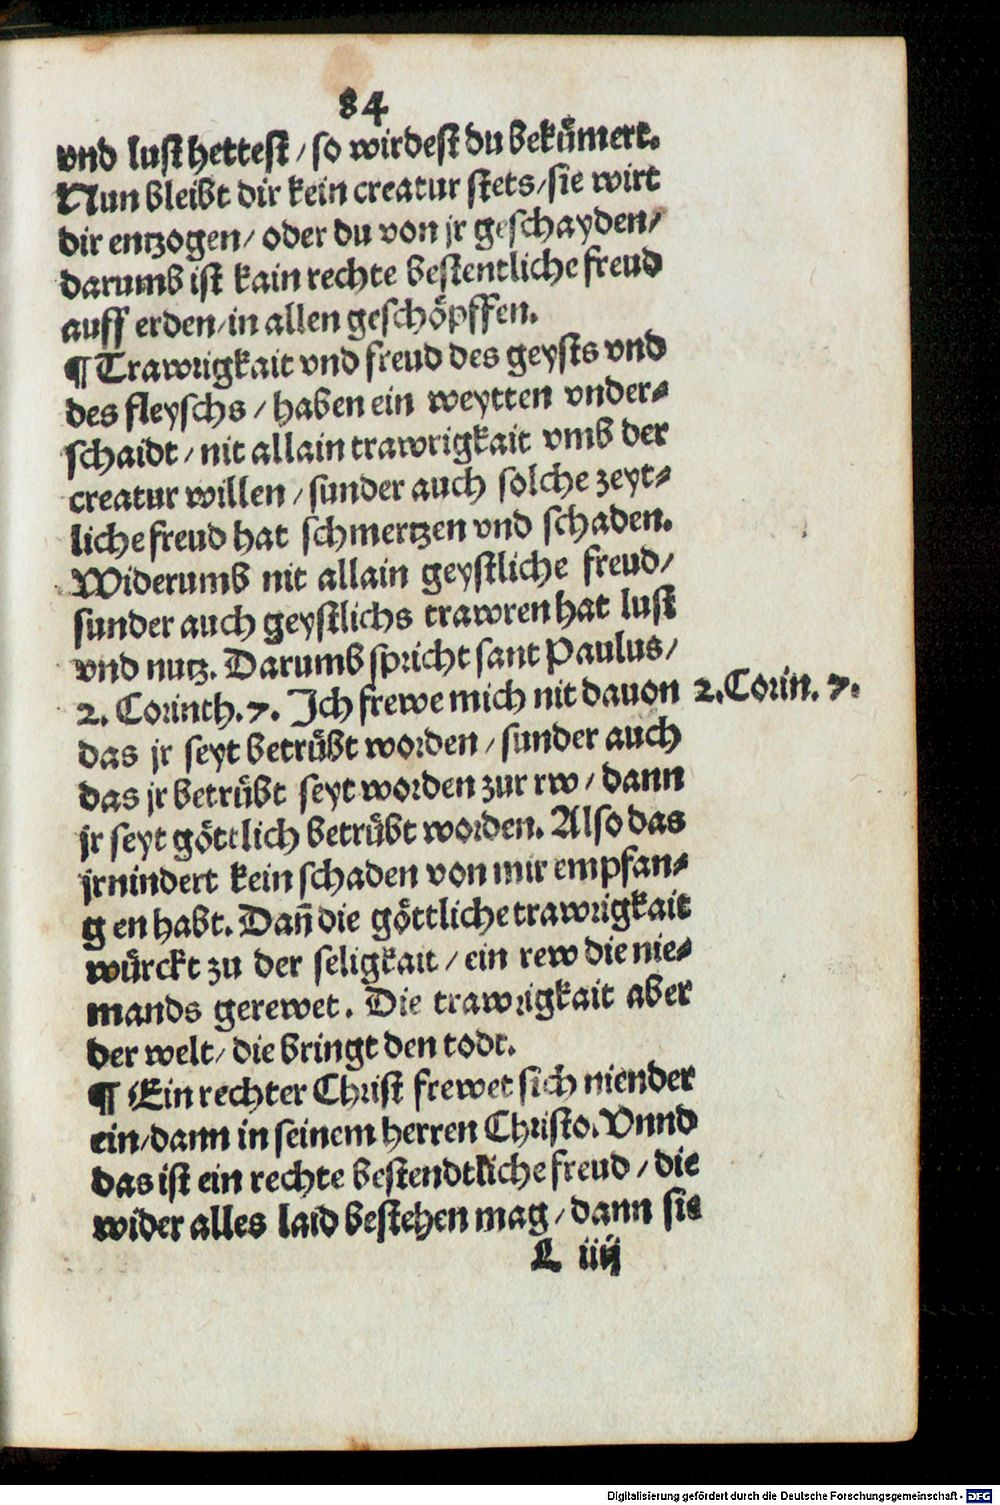 84
vnd lust hettest / so wirdest du bekümert.
Nun bleibt dir kein creatur stets / sie wirt
dir entzogen / oder du von jr geschayden /
darumb ist kain rechte bestentliche freud
auff erden / in allen geschöpffen.
¶ Trawrigkait vnd freud des geysts vnd
des fleyschs / haben ein weytten vnder⸗
schaidt / nit allain trawrigkait vmb der
creatur willen / sunder auch solche zeyt⸗
liche freud hat schmertzen vnd schaden.
Widerumb nit allain geystliche freud /
sunder auch geystlichs trawren hat lust
vnd nutz. Darumb spricht sant Paulus /
2. Corinth. 7. Ich frewe mich nit dauon 2. Corin. 7.
das jr seyt betrübt worden / sunder auch
das jr betrübt seyt worden zur rw / dann
jr seyt göttlich betrübt worden. Also das
jr nindert kein schaden von mir empfan⸗
g en habt. Dañ die göttliche trawrigkait
würckt zu der seligkait / ein rew die nie⸗
mands gerewet. Die trawrigkait aber
der welt / die bringt den todt.
¶ Ein rechter Christ frewet sich niender
ein / dann in seinem herren Christo. Vnnd
das ist ein rechte bestendtliche freud / die
wider alles laid bestehen mag / dann sie
L iiij
Digitalisierung gefördert durch die Deutsche Forschungsgemeinschaft - DFG